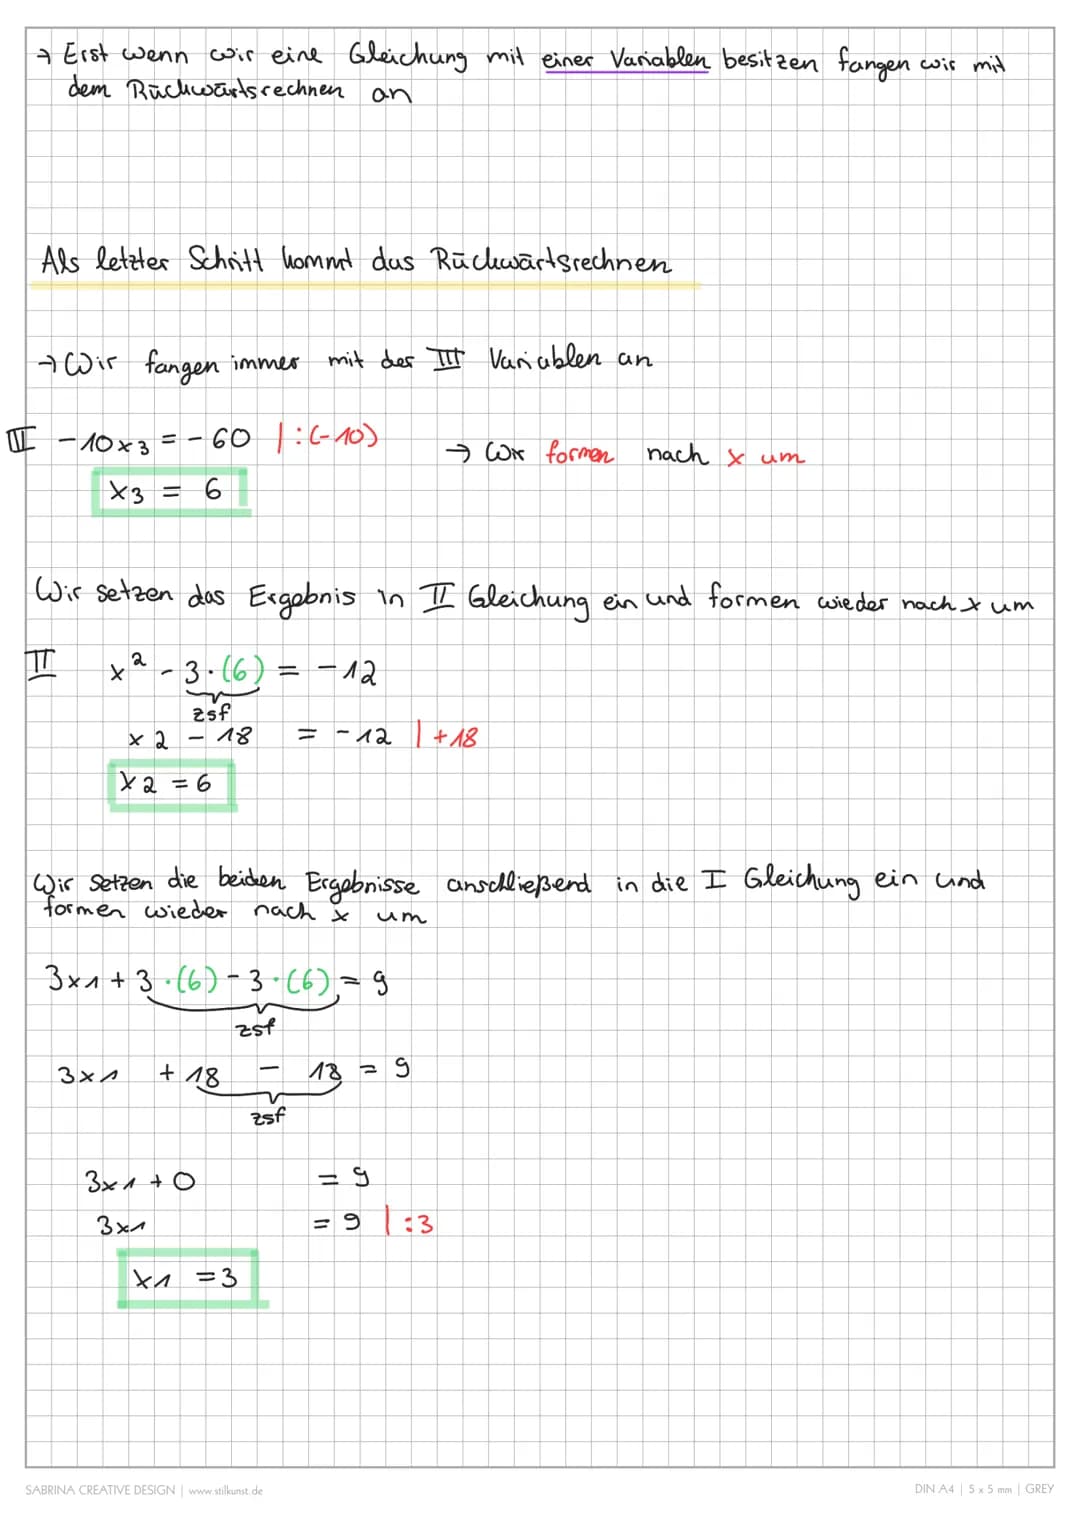 → Erst wenn wir eine Gleichung mit einer Variablen besitzen fangen wir mit
dem Rückwärtsrechnen an
Als letzter Schritt kommt das Rückwärtsrechnen
→ Wir fangen immer mit der III Variablen an
III -10x3 = -60 | :(-10)
→ Wir formen nach x um
x3 = 6
Wir setzen das Ergebnis in II Gleichung ein und formen wieder nach x um
II x² - 3·(6) = -12
zsf
x2 - 18 = -12 | +18
x2 = 6
Wir setzen die beiden Ergebnisse anschließend in die I Gleichung ein und
formen wieder nach x um
3x1 + 3·(6) - 3·(6) = 9
zsf
3x1 + 18 - 18 = 9
zsf
3x1 + 0 = 9
3x1 = 9 | :3
x1 = 3
SABRINA CREATIVE DESIGN | www.stilkunst.de DIN A4 | 5 x 5 mm | GREY